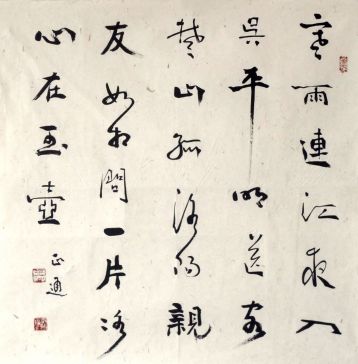 寒雨連江夜入
吳平明送客
楚山孤洛陽親
友如相問一片冰
心在玉壺
正通